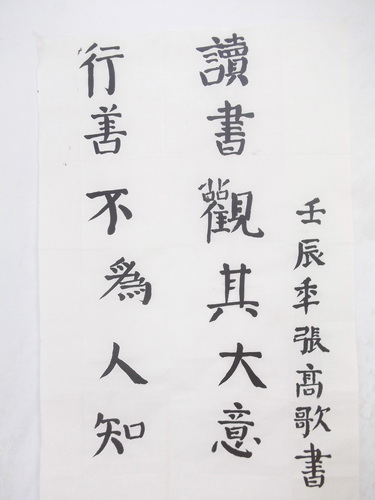 壬辰年張高歌書
讀書觀其大意
行善不為人知